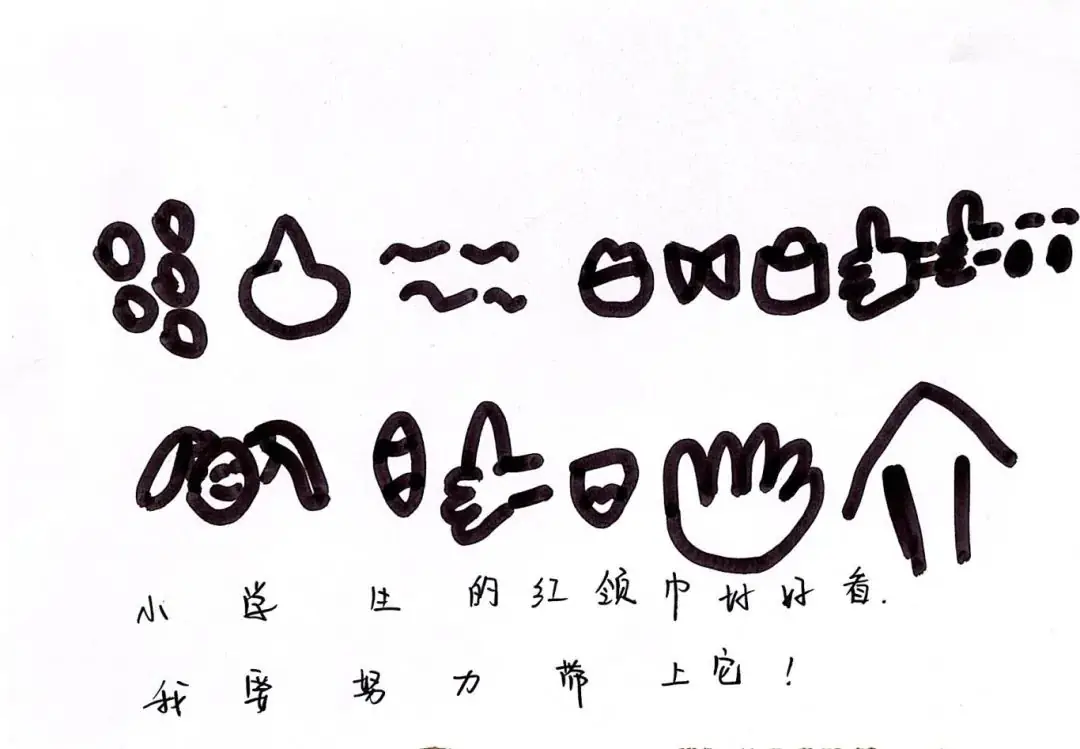 小学生的红领巾好好看.
我要努力带上它!